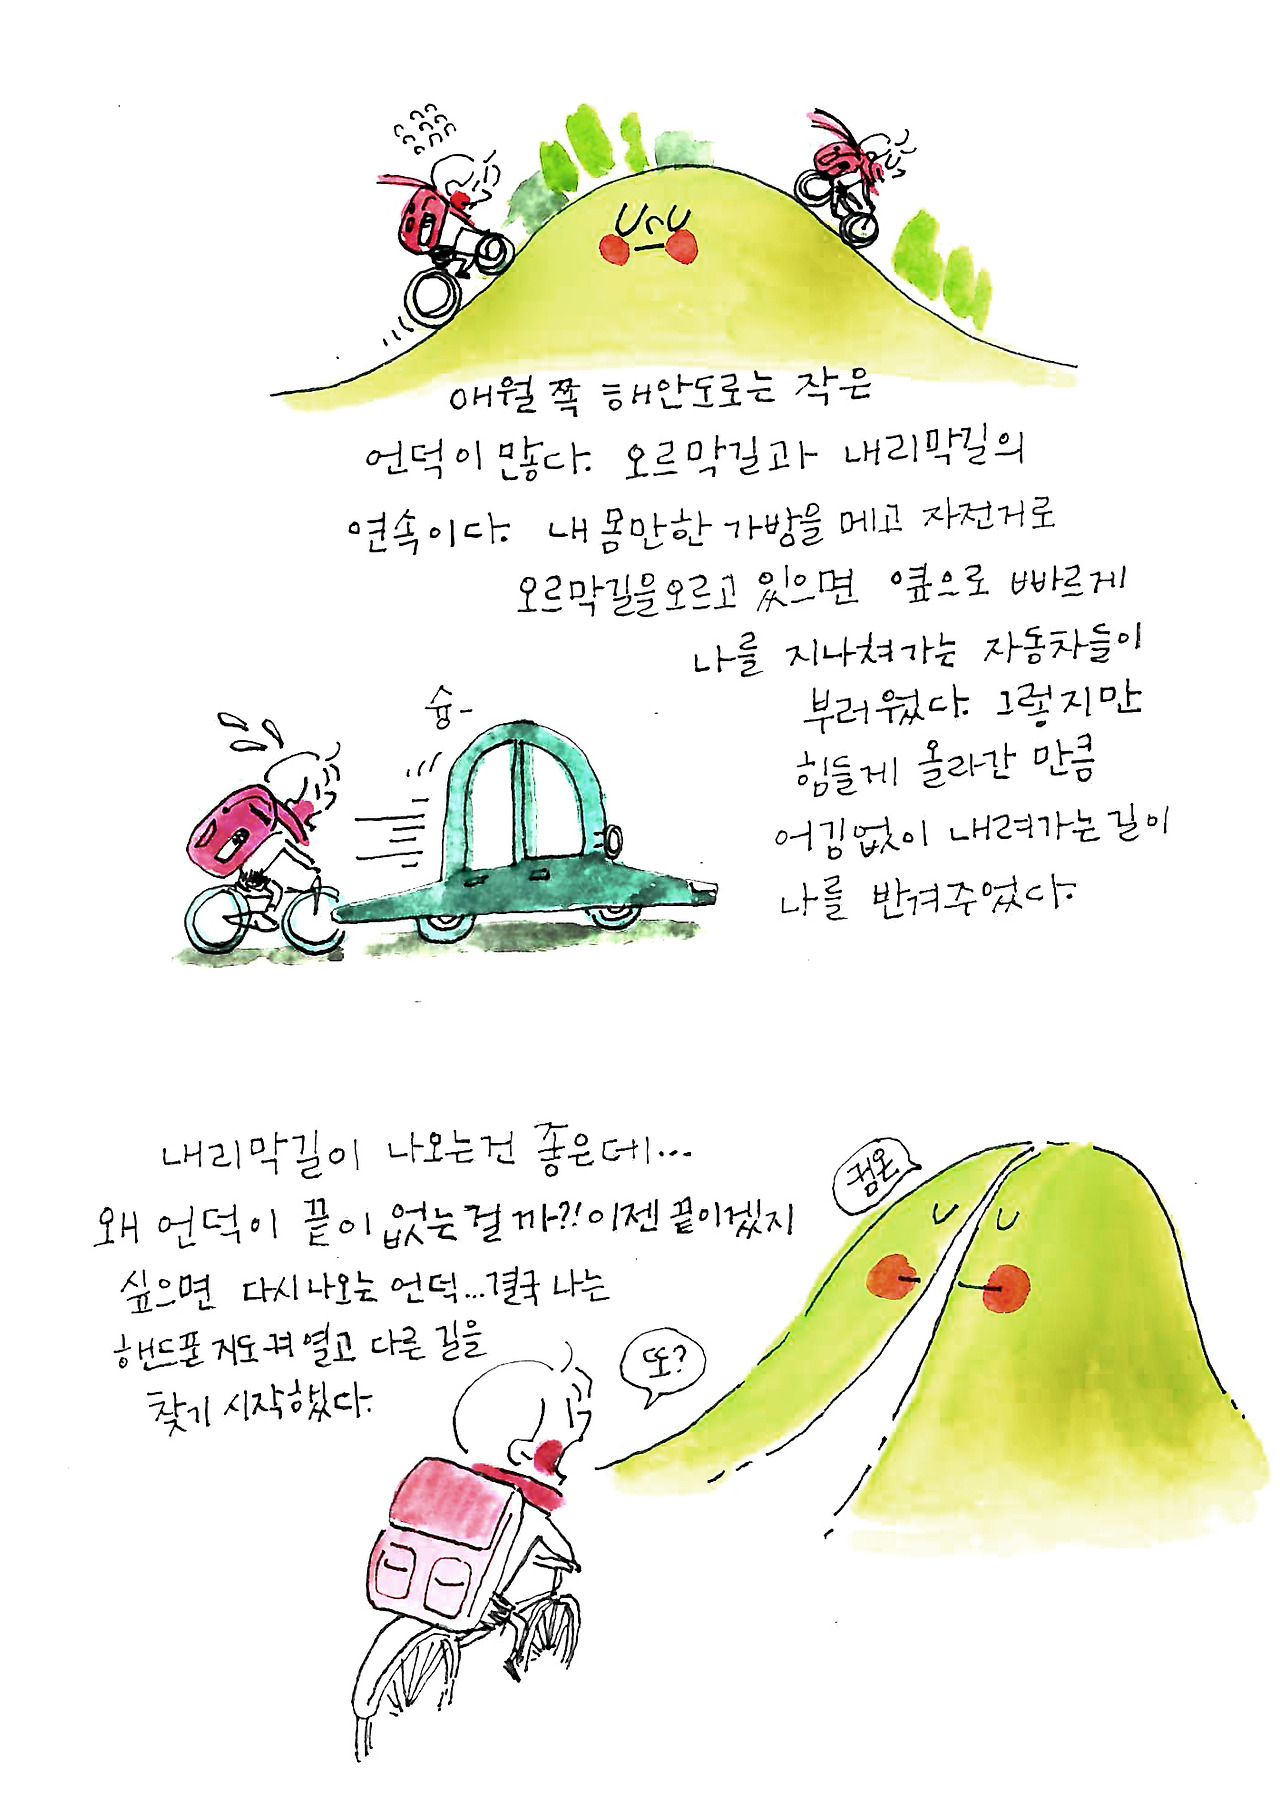 애월 쪽 해안도로는 작은
언덕이 많다. 오르막길과 내리막길의
연속이다. 내 몸만한 가방을 메고 자전거로
오르막길을 오르고 있으면 옆으로 빠르게
나를 지나쳐가는 자동차들이
부러웠다. 그렇지만
힘들게 올라간 만큼
어김없이 내려가는 길이
나를 반겨주었다.
슝-
내리막길이 나오는건 좋은데...
왜 언덕이 끝이 없는걸까?! 이젠 끝이겠지
싶으면 다시 나오는 언덕...결국 나는
핸드폰 지도 켜 열고 다른 길을
찾기 시작했다.
컴온
또?